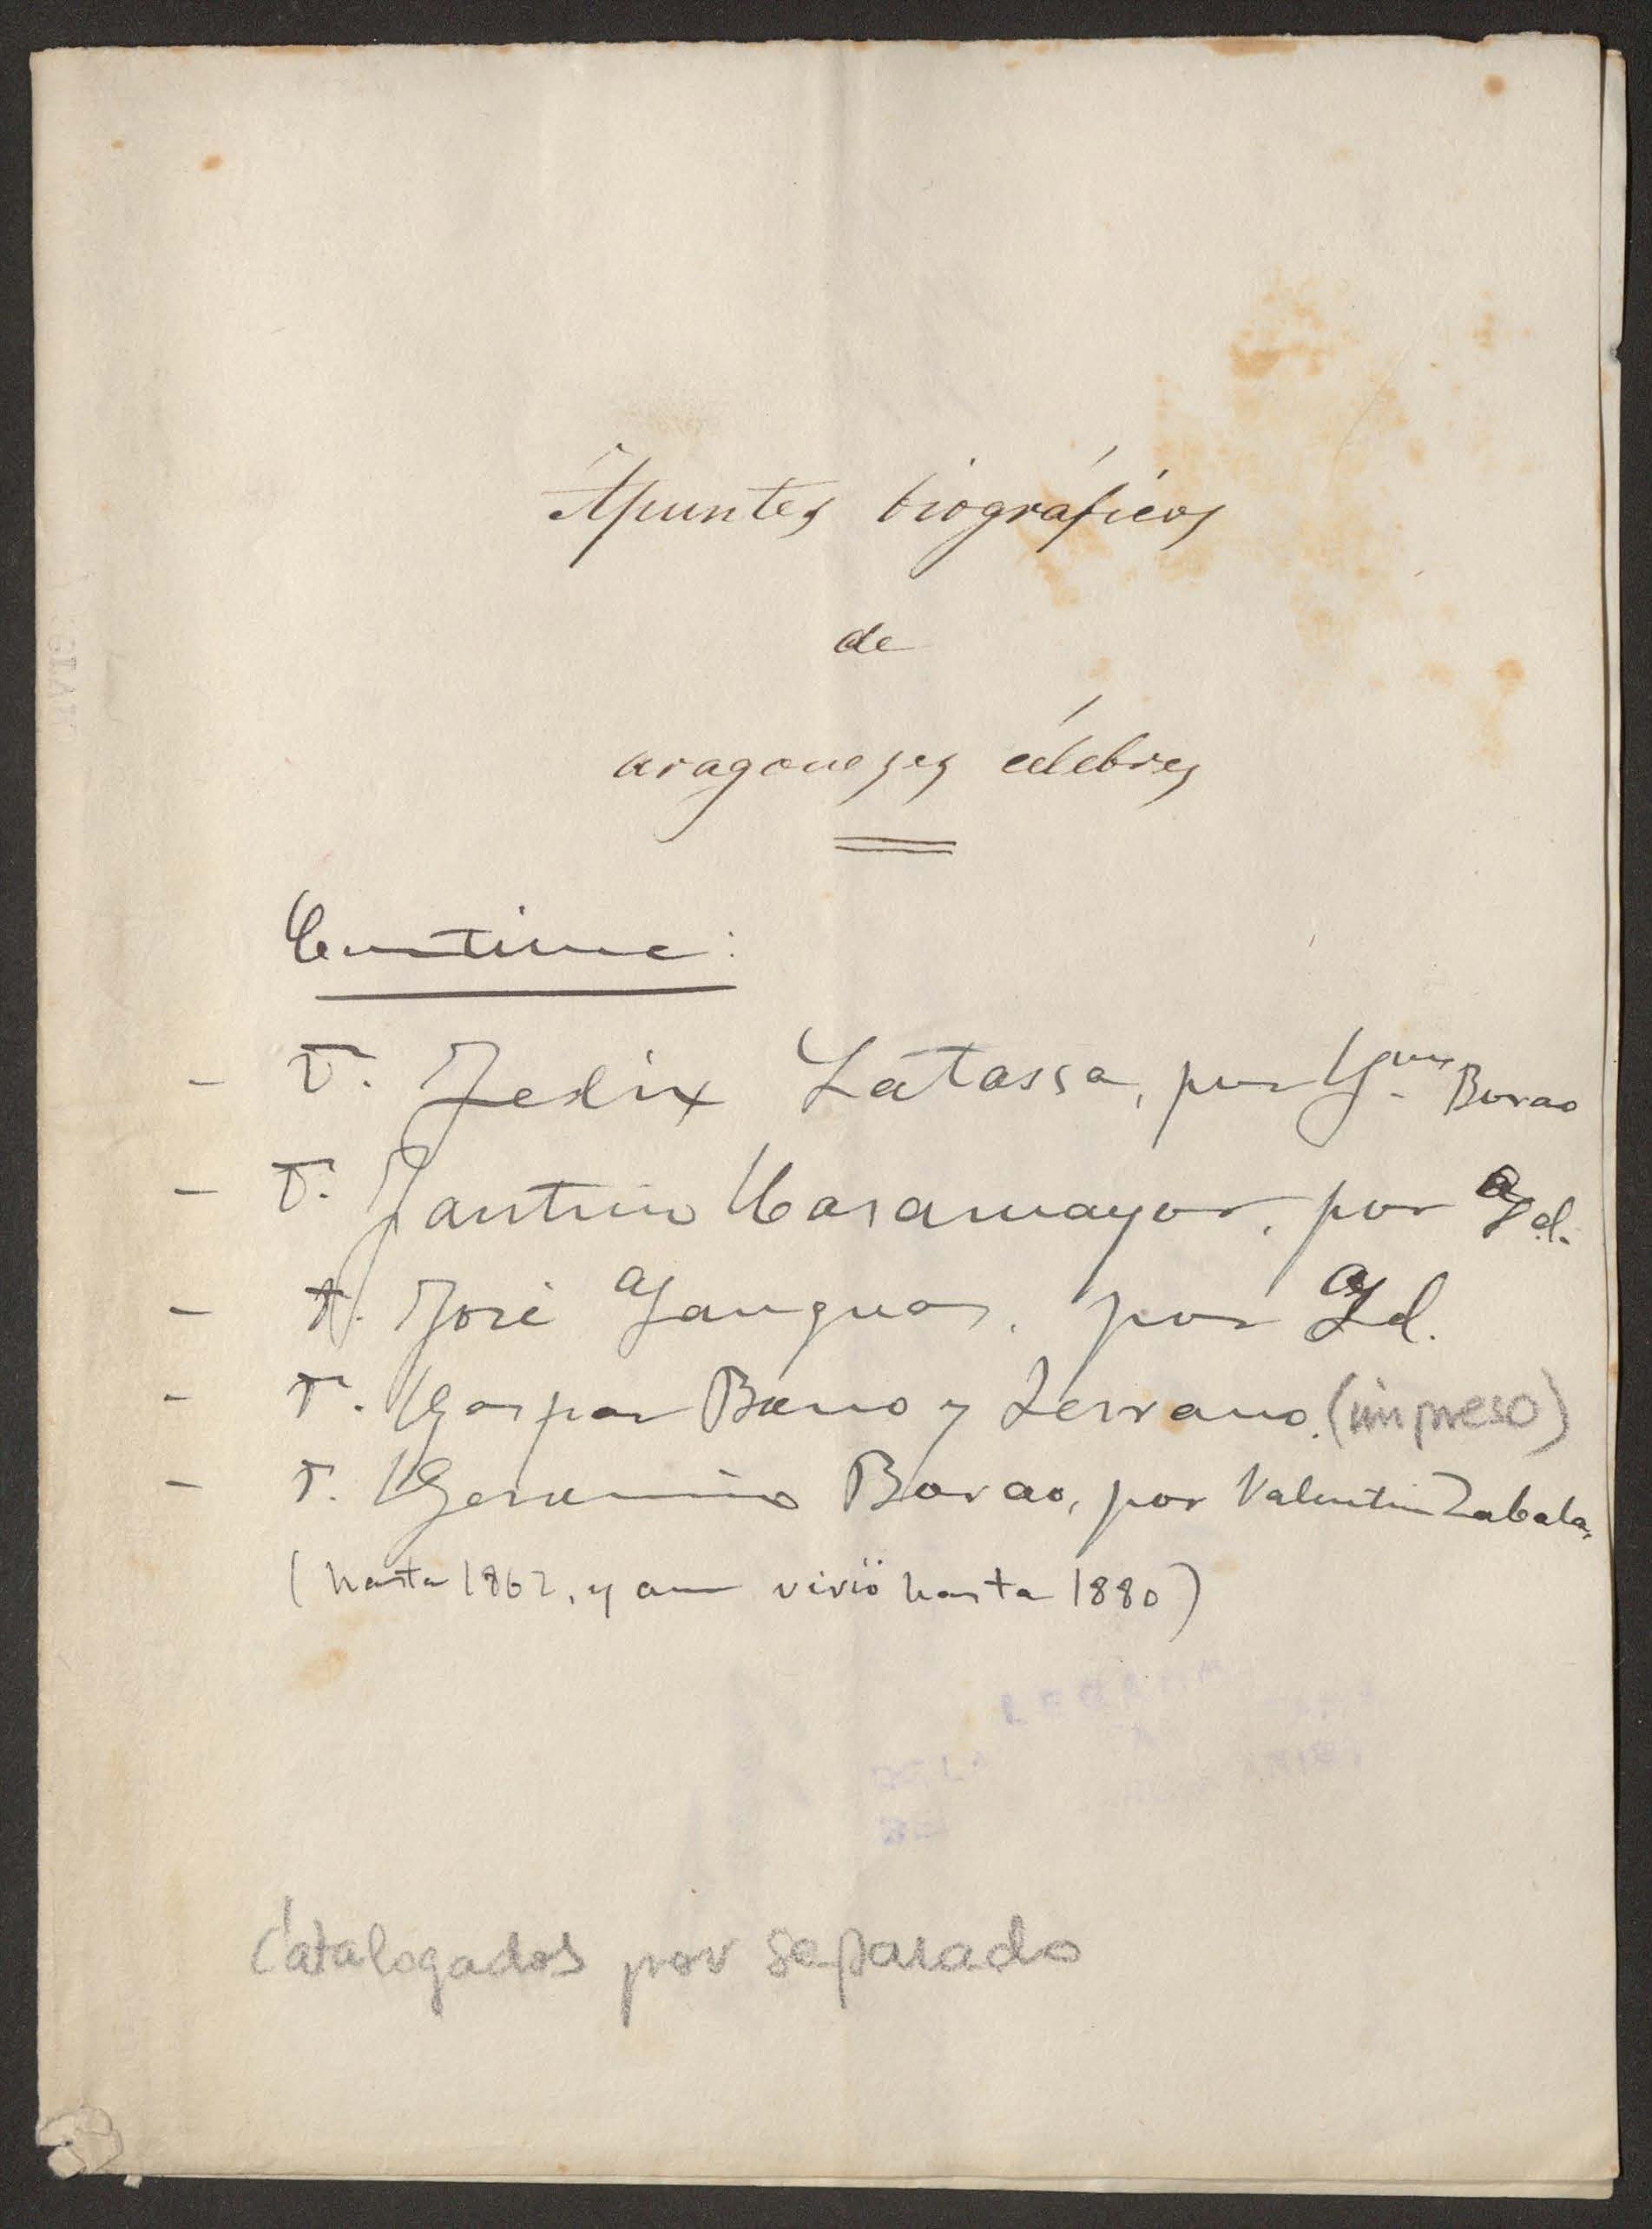 Apuntes biográficos
de
aragoneses célebres
Contiene:
- D. Felix Latassa, por Gmo Borao
- D. Faustino Casamayor, por Id.
- D. José Yanguas, por Id.
- D. Gaspar Bono y Serrano. (impreso)
- D. Geronimo Borao, por Valentin Zabala,
(hasta 1862, y aun vivió hasta 1880)
Catalogados por separado